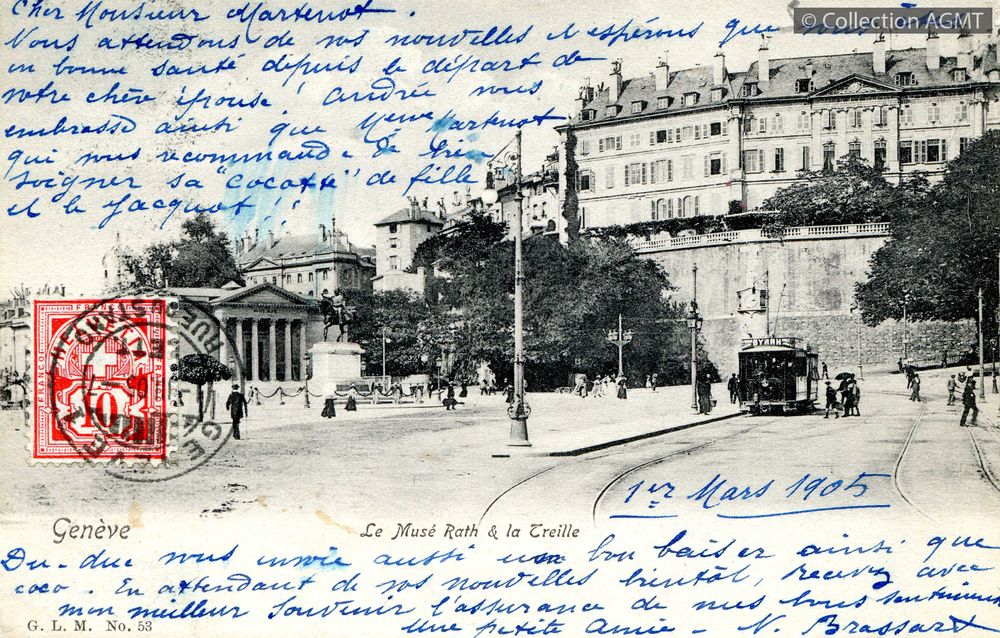 © Collection AGMT
Cher Monsieur Martenot.
Nous attendons de vos nouvelles et espérons que vous êtes
en bonne santé depuis le départ de
votre chère épouse! Andrée vous
embrasse ainsi que Mme Martenot
qui vous recommande de bien
soigner sa "cocotte" de fille
et le Jacquot!!
BYRRH
FRANCO
10
GENÈVE
1er Mars 1905
Genève
Le Musé Rath & la Treille
Du-duc vous envoie aussi un bon baiser ainsi que
coco. En attendant de vos nouvelles bientôt, recevez avec
mon meilleur souvenir l'assurance de nos bons sentiments
Une petite amie - N. Brassart
G. L. M. No. 53